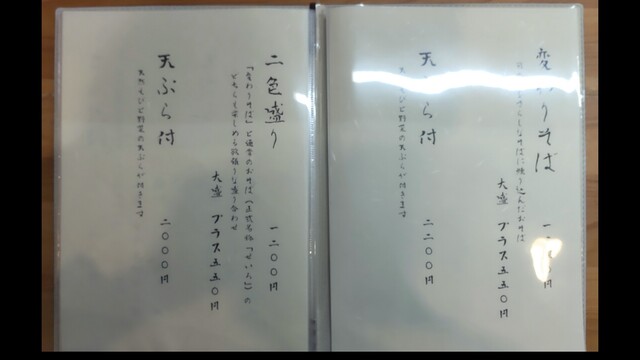 変わりそば 一二〇〇円
大盛 プラス五五〇円
天ぷら付 二二〇〇円
天然えびと野菜の天ぷらが付きます
二色盛り 一二〇〇円
「変わりそば」と通常のおそば(正式名称「せいろ」)の
どちらも楽しめる欲張りな盛り合わせ
大盛 プラス五五〇円
天ぷら付 二〇〇〇円
天然えびと野菜の天ぷらが付きます